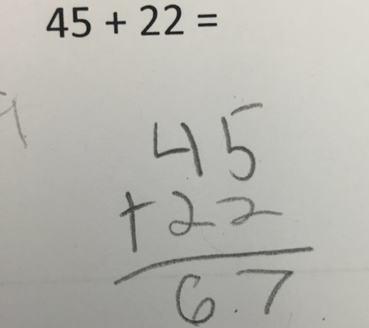 45 + 22 =
45
+22
6.7